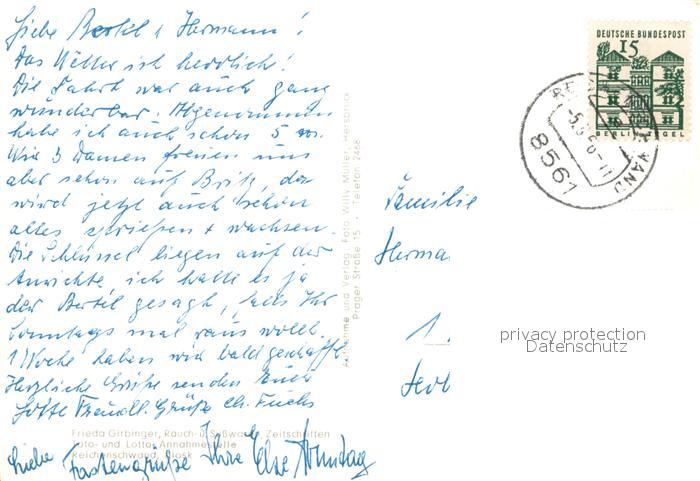 Liebe Bertel u Hermann!
Das Wetter ist herrlich!
Die Fahrt war auch ganz
wunderbar. Abgenommen
habe ich auch schon 5
Wir 3 Damen freuen uns
aber schon auf Britz, da
wird jetzt auch schon
alles spriessen + wachsen.
Die Schlüssel liegen auf der
Anrichte, ich hatte es ja
der Bertel gesagt, falls Ihr
Sonntags mal raus wollt.
1 Woche haben wir bald geschafft
Herzliche Grüße senden Euch
Lotte Freundl. Grüße Ch. Fuchs
Liebe Fastengrüße Ihre Else
Frieda Girbinger, Rauch- u. Süßwaren, Zeitschriften
Foto- und Lotto-Annahmestelle
Reichenschwand, Kiosk
Aufnahme und Verlag: Foto Willy Müller, Hersbruck
Prager Straße 15 · Telefon 2468
DEUTSCHE BUNDESPOST
15
BERLIN TEGEL
8561
Familie
Herma
1.
privacy protection
Datenschutz